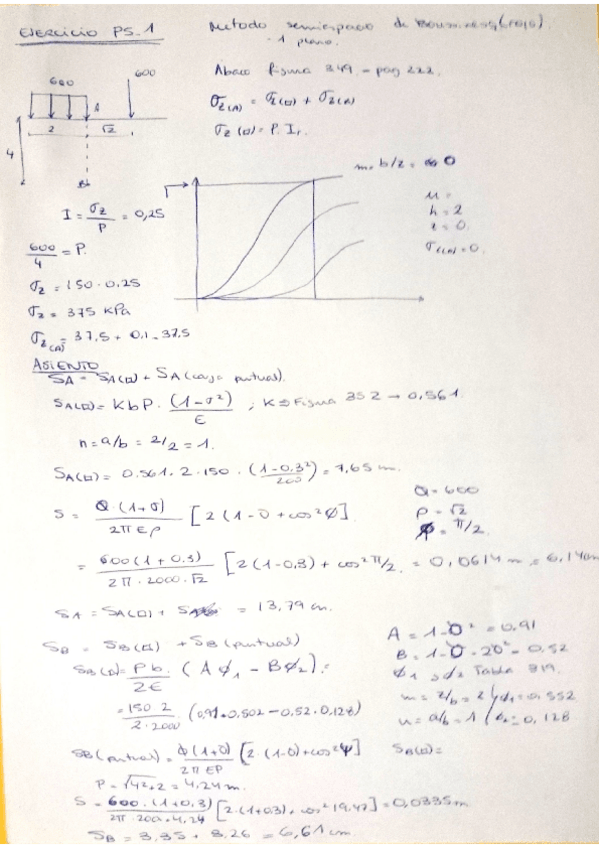 EJERCICIO PS.1
Metodo semiespacio de Boussinesq (rojo).
- 1 plano.
Abaco figura 349 - pag 222.
σz(A) = σz(□) + σz(A)
σz(□) = P. I1.
600
600
A
2
√2
4
I = σz/P = 0,25
600/4 = P.
σz = 150 . 0.25
σz = 375 KPa
σz(A) = 37,5 + 0,1 - 37,5
m = b/z = ∞ 0
h = 2
z = 0.
ASIENTO
SA = SA(□) + SA(carga puntual).
SA(□) = K b P . (1-σ²)/E ; K ⇒ Figura 352 → 0,561
n = a/b = 2/2 = 1.
SA(□) = 0.561 . 2 . 150 . (1-0.3²)/200 = 7,65 m.
S = Q (1+σ)/2πEρ [2 (1-σ + cos²φ].
Q = 600
ρ = √2
φ = π/2.
= 600 (1+0.3)/2π . 2000 . √2 [2 (1-0,3) + cos² π/2. = 0,0614 m = 6,14cm
SA = SA(□) + SA = 13,79 cm.
SB = SB(□) + SB (puntual)
SB(□) = P b./2E (A φ1 - B φ2) =
= 150 2/2.2000 (0,91.0,502 - 0,52.0,128)
A = 1-σ² = 0.91
B = 1-σ-2σ² = 0,52
φ1 y φ2 Tabla 319.
m = z/b = 2 φ1 = 0.552
n = a/b = 1 φ2 = 0,128
SB (puntual) = Q (1+σ)/2π Eρ [2 . (1-σ) + cos²ψ]
SB(□) =
ρ = √4²+2 = 4,24 m.
S = 600 . (1+0,3)/2π . 200 . 4,24 [2 . (1+0.3) + cos² 19.47] = 0,0335m
SB = 3,35 + 3,26 = 6,61 cm